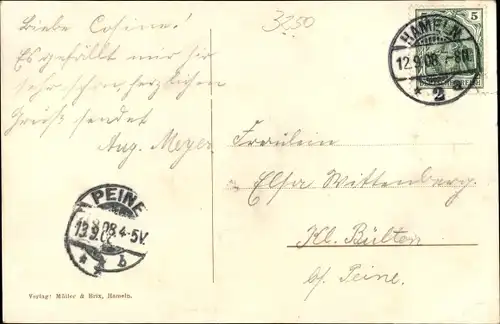 3250
Liebe Cosine!
Es gefällt mir hir
sehr schön, herzlichen
Gruß sendet
Aug. Meyer
5
HAMELN
12.9.08. 7-8N
* 2 a
Fräulein
Elsa Wittenberg.
Kl. Bülten
b/ Peine.
PEINE
13.9.08.4-5V.
* b
Verlag: Müller & Brix, Hameln.